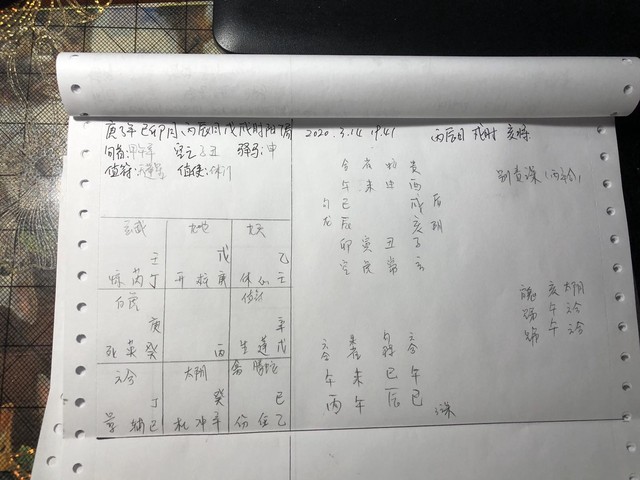 庚子年 己卯月 丙辰日 戊戌时 阳
旬首:甲午辛 空亡 丑 驿马:申
值符:天蓬星 值使:休门
玄武 九地 九天
壬 戊 乙
惊芮丁 开柱庚 休心壬
白虎 值符
庚 辛
死英癸 丙 生蓬戊
六合 太阴 螣蛇
丁 癸 己
景辅己 杜冲辛 伤任乙
2020.3.14 19:41 丙辰日 戌时 亥将
合 雀 蛇 贵
午 未 申 酉
勾巳 戌后
龙辰 亥阴
卯 寅 丑 子
空 虎 常 玄
别责课(丙辛合)
亥 太阴
午 六合
午 六合
六合 雀 勾 六合
午 未 巳 午
丙 午 辰 巳